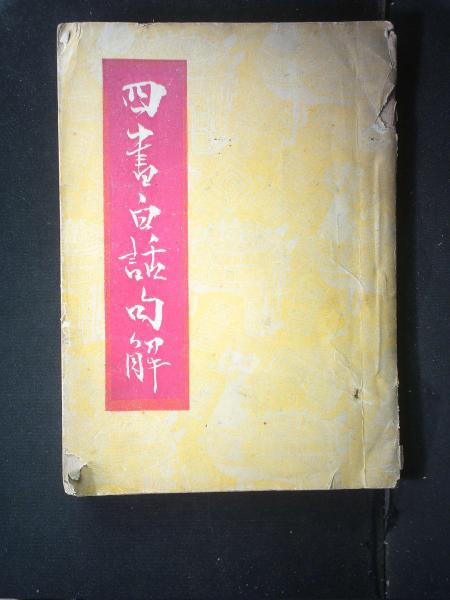 四書白話句解